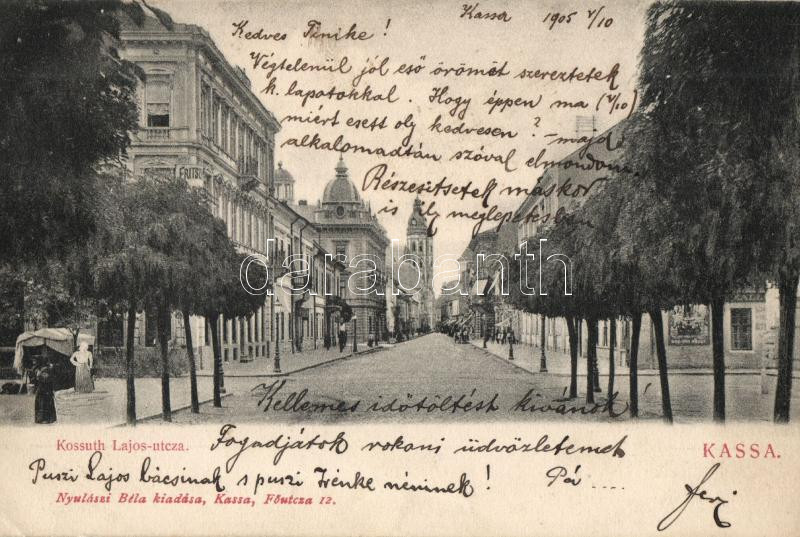 Kassa 1905 V/10
Kedves Tinike!
Végtelenül jól eső örömet szereztetek
k. lapotokkal. Hogy éppen ma (V/10)
miért esett oly kedvesen? – majd
alkalomadtán szóval elmondom.
Részesitsetek máskor
is ily meglepetésben
FRITSC
darabanth
Kellemes időtöltést kivánok
Kossuth Lajos-utcza.
Fogadjátok rokoni üdvözletemet
KASSA.
Puszi Lajos bácsinak s puszi Irénke néninek! Pá ....
Nyulászi Béla kiadása, Kassa, Főutcza 12.